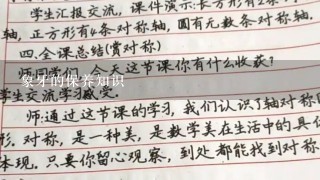 学生汇报交流,课件演示:长方形有2条
轴,正方形有4条对称轴,圆有无数条对称轴.
四.全课总结(赏对称)
今天这节课你有什么收获?
象牙的保养知识
学生交流学习感受.
师:通过这节课的学习,我们认识了轴对称图
形.对称,是一种美,是数学美在生活中的具体
体现.只要你留心观察,到处都能找到对称